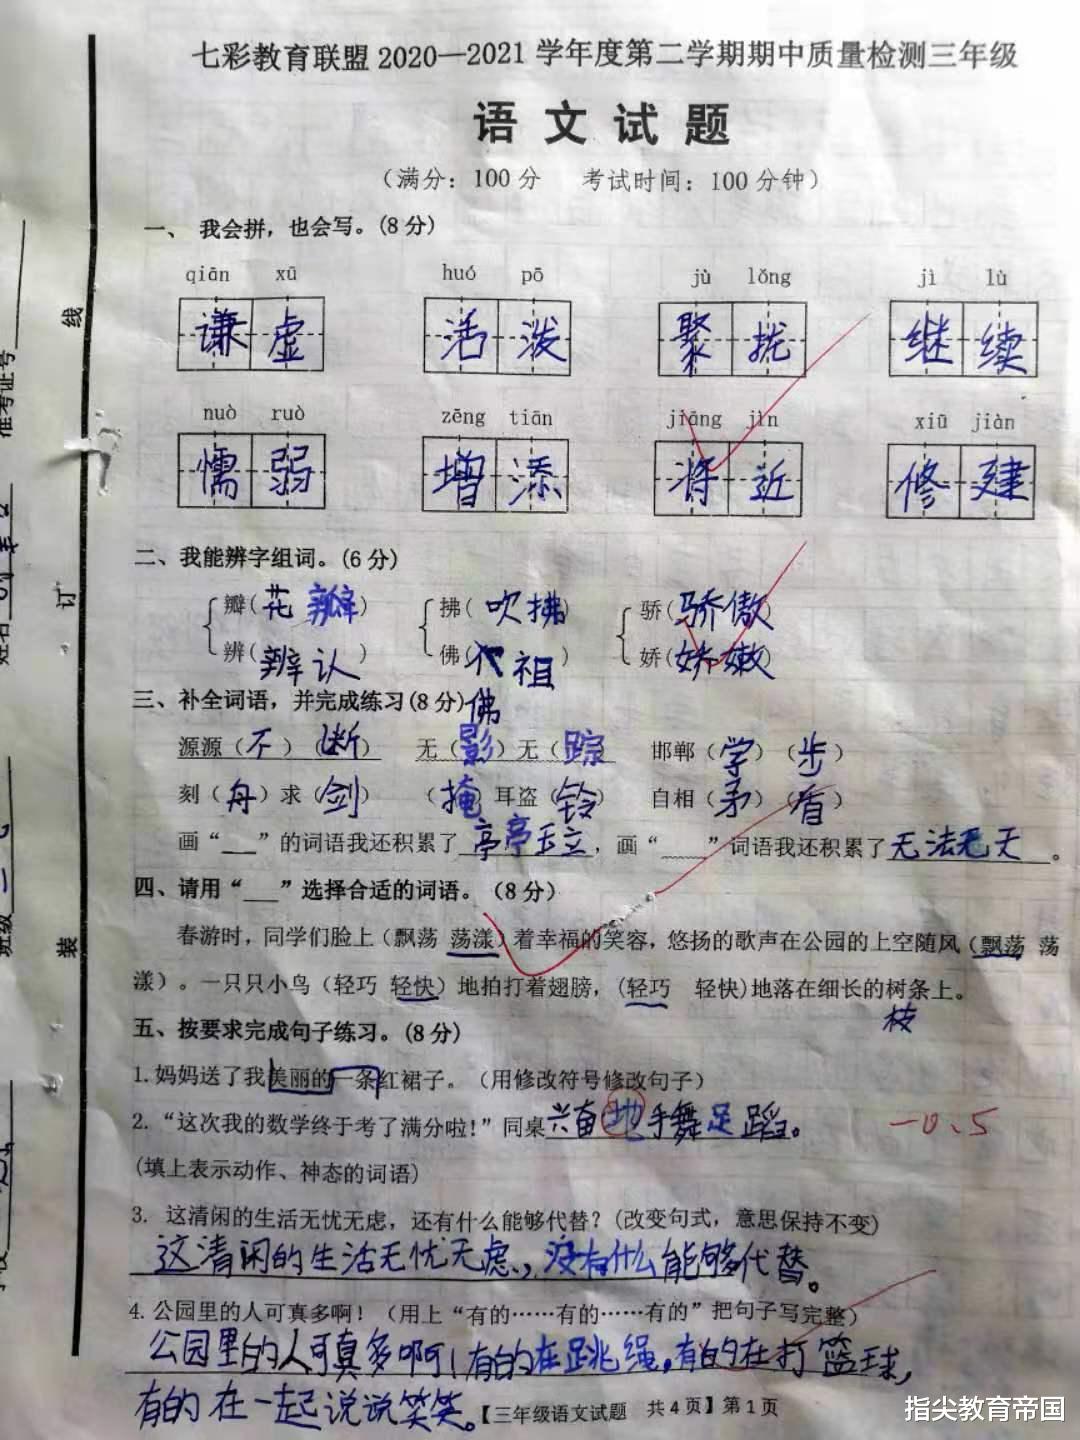 七彩教育联盟2020—2021学年度第二学期期中质量检测三年级
语文试题
（满分：100分 考试时间：100分钟）
一、 我会拼，也会写。(8分)
qiān xū huó pō jù lǒng jì lù
谦虚 活泼 聚拢 继续
nuò ruò zēng tiān jiāng jìn xiū jiàn
懦弱 增添 将近 修建
二、我能辨字组词。(6分)
瓣(花瓣) 拂(吹拂) 骄(骄傲)
辨(辨认) 佛(佛祖) 娇(娇嫩)
三、补全词语，并完成练习(8分)
源源（不）（断） 无（影）无（踪） 邯郸（学）（步）
刻（舟）求（剑） （掩）耳盗（铃） 自相（矛）（盾）
画“___”的词语我还积累了亭亭玉立，画“﹏﹏”词语我还积累了无法无天。
四、请用“___”选择合适的词语。（8分）
春游时，同学们脸上（飘荡 荡漾）着幸福的笑容，悠扬的歌声在公园的上空随风（飘荡 荡
漾）。一只只小鸟（轻巧 轻快）地拍打着翅膀，（轻巧 轻快)地落在细长的树条上。
枝
五、按要求完成句子练习。(8分)
1.妈妈送了我美丽的一条红裙子。（用修改符号修改句子）
2.“这次我的数学终于考了满分啦!”同桌兴奋地手舞足蹈。
-0.5
(填上表示动作、神态的词语)
3. 这清闲的生活无忧无虑，还有什么能够代替？(改变句式，意思保持不变)
这清闲的生活无忧无虑，没有什么能够代替。
4.公园里的人可真多啊！（用上“有的……有的……有的”把句子写完整）
公园里的人可真多啊!有的在跳绳,有的在打篮球,
有的在一起说说笑笑。
【三年级语文试题 共4页】第1页
线
订
装
准考证号
姓名
班级
指尖教育帝国